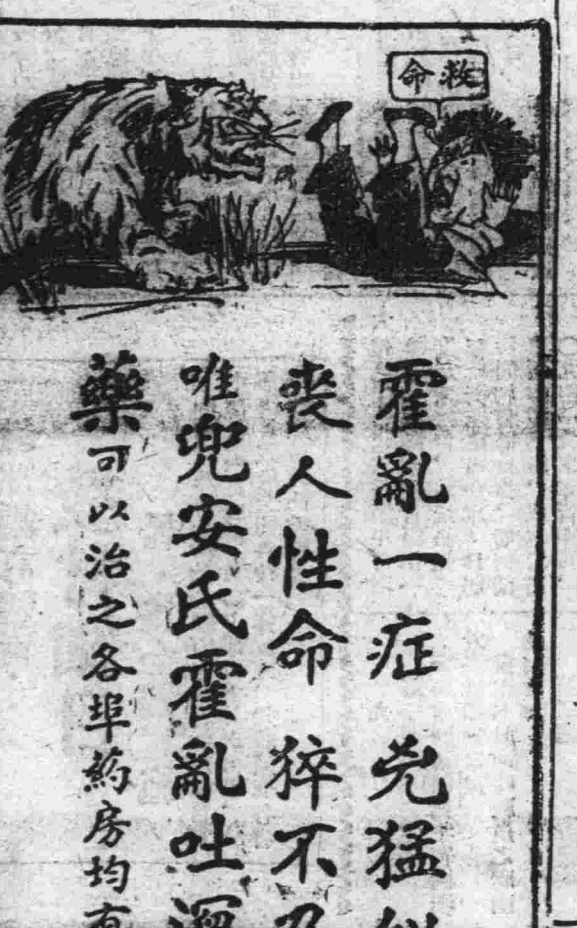 救命
霍亂一症 兇猛
喪人性命 猝不及
唯兜安氏霍亂吐瀉
藥可以治之各埠葯房均有